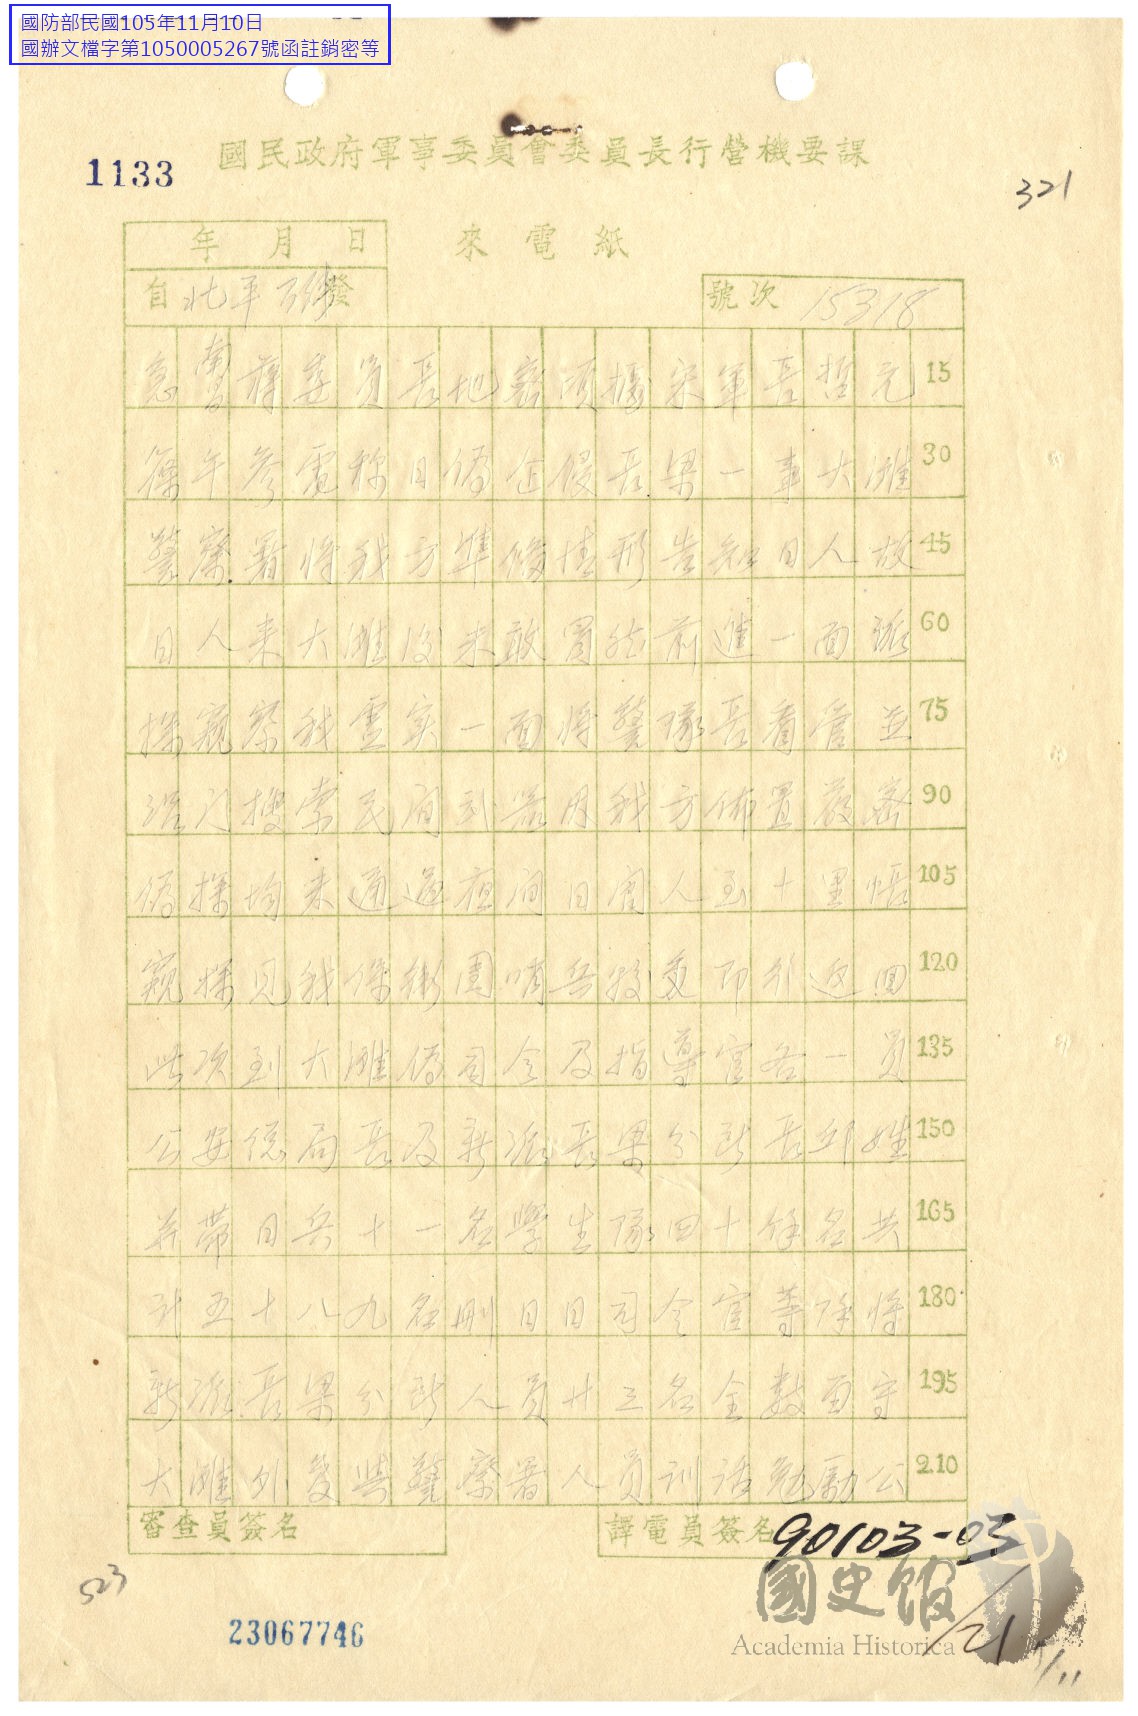 國防部民國105年11月10日
國辦文檔字第1050005267號函註銷密等
國民政府軍事委員會委員長行營機要課
1133
321
年 月 日
來電紙
自北平 發
號次 15318
急南昌蔣委員長地密頃據宋軍長哲元 15
篠午參電稱日偽企侵長梁一事大灘 30
警察署將我方準備情形告知日人故 45
日人來大灘後未敢冒然前進一面派 60
探窺察我虛實一面將警隊長看管並 75
派 搜索民間武器因我方佈置嚴密 90
偽探均未通過夜間日 人 十里 105
窺探見我保衛團哨兵 即行返回 120
此次到大灘偽司令及指導官各一員 135
公安 局長及新派長梁分所長邱姓 150
并帶日兵十一名學生隊四十餘名共 165
計五十八九名刪日日司令官等除將 180
新派長梁分所人員廿三名全數留守 195
大灘外 警察署人員訓話勉勵公 210
審查員簽名
譯電員簽名
90103-03
國史館
Academia Historica
21
523
23067746